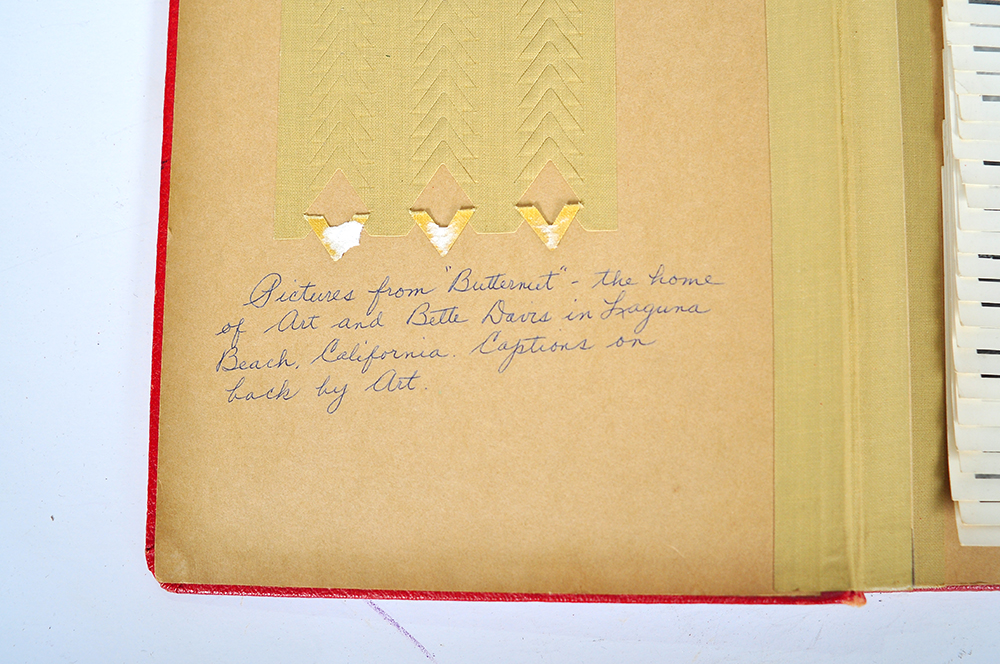 Pictures from "Butternut" - the home
of Art and Bette Davis in Laguna
Beach, California. Captions on
back by Art.